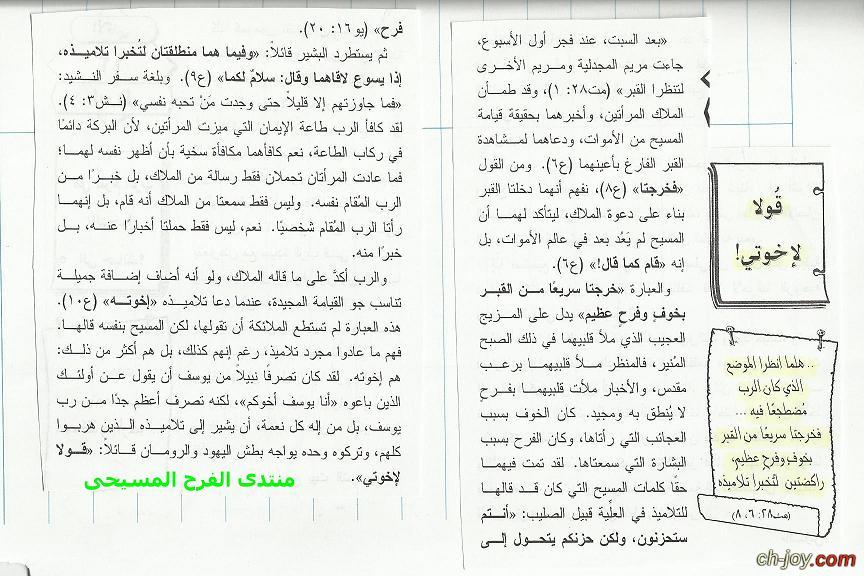 قُولا
لإخوتي!
.. هلما انظرا الموضع
الذي كان الرب
مُضطجعًا فيه ...
فخرجتا سريعًا من القبر
بخوفٍ وفرحٍ عظيمٍ،
راكضتين لتُخبرا تلاميذه
(مت٢٨: ٦، ٨)
«بعد السبت، عند فجر أول الأسبوع،
جاءت مريم المجدلية ومريم الأخرى
لتنظرا القبر» (مت٢٨: ١)، وقد طمأن
الملاك المرأتين، وأخبرهما بحقيقة قيامة
المسيح من الأموات، ودعاهما لمشاهدة
القبر الفارغ بأعينهما (ع٦). ومن القول
«فخرجتا» (ع٨)، نفهم أنهما دخلتا القبر
بناء على دعوة الملاك، ليتأكد لهما أن
المسيح لم يَعُد بعد في عالم الأموات، بل
إنه «قام كما قال!» (ع٦).
والعبارة «خرجتا سريعًا من القبر
بخوفٍ وفرحٍ عظيم» يدل على المزيج
العجيب الذي ملأ قلبيهما في ذلك الصبح
المُنير، فالمنظر ملأ قلبيهما برعب
مقدس، والأخبار ملأت قلبيهما بفرح
لا يُنطق به ومجيد. كان الخوف بسبب
العجائب التي رأتاها، وكان الفرح بسبب
البشارة التي سمعتاها. لقد تمت فيهما
حقًا كلمات المسيح التي كان قد قالها
للتلاميذ في العلّية قبيل الصليب: «أنتم
ستحزنون، ولكن حزنكم يتحول إلى
فرح» (يو١٦: ٢٠).
ثم يستطرد البشير قائلاً: «وفيما هما منطلقتان لتُخبرا تلاميذه،
إذا يسوع لاقاهما وقال: سلامٌ لكما» (ع٩). وبلغة سفر النشيد:
«فما جاوزتهم إلا قليلاً حتى وجدت مَنْ تحبه نفسي» (نش٣: ٤).
لقد كافأ الرب طاعة الإيمان التي ميزت المرأتين، لأن البركة دائمًا
في ركاب الطاعة، نعم كافأهما مكافأة سخية بأن أظهر نفسه لهما؛
فما عادت المرأتان تحملان فقط رسالة من الملاك، بل خبرًا من
الرب المُقام نفسه. وليس فقط سمعتا من الملاك أنه قام، بل إنهما
رأتا الرب المُقام شخصيًا. نعم، ليس فقط حملتا أخبارًا عنه، بل
خبرًا منه.
والرب أكدَّ على ما قاله الملاك، ولو أنه أضاف إضافة جميلة
تناسب جو القيامة المجيدة، عندما دعا تلاميذه «إخوته» (ع١٠).
هذه العبارة لم تستطع الملائكة أن تقولها، لكن المسيح بنفسه قالها.
فهم ما عادوا مجرد تلاميذ، رغم إنهم كذلك، بل هم أكثر من ذلك:
هم إخوته. لقد كان تصرفًا نبيلاً من يوسف أن يقول عن أولئك
الذين باعوه «أنا يوسف أخوكم»، لكنه تصرف أعظم جدًا من رب
يوسف، بل من إله كل نعمة، أن يشير إلى تلاميذه الذين هربوا
كلهم، وتركوه وحده يواجه بطش اليهود والرومان قائلاً: «قولا
لإخوتي».
منتدى الفرح المسيحى
ch-joy.com